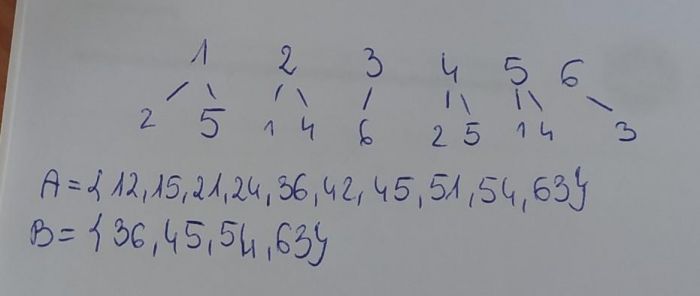 1 2 3 4 5 6
2 5 1 4 6 2 5 1 4 3
A = { 12, 15, 21, 24, 36, 42, 45, 51, 54, 63}
B = { 36, 45, 54, 63}